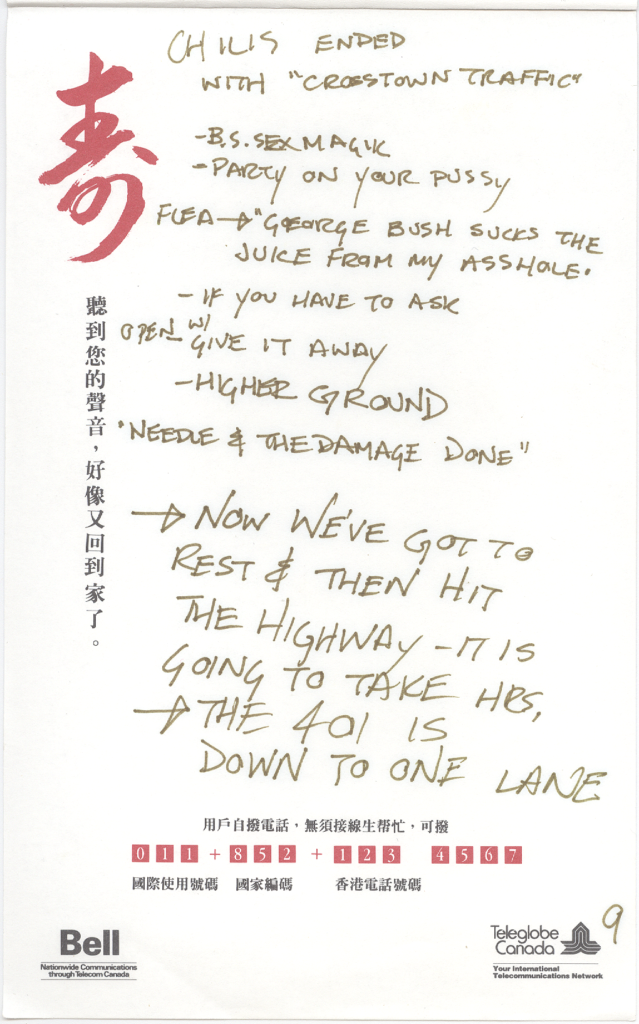 CHILIS ENDED
WITH "CROSSTOWN TRAFFIC"
壽
-B.S.SEX MAGIK
-PARTY ON YOUR PUSSY
FLEA→"GEORGE BUSH SUCKS THE
JUICE FROM MY ASSHOLE.
-IF YOU HAVE TO ASK
OPEN W/
GIVE IT AWAY
-HIGHER GROUND
"NEEDLE & THE DAMAGE DONE"
聽到您的聲音，好像又回到家了。
→NOW WE'VE GOT TO
REST & THEN HIT
THE HIGHWAY - IT IS
GOING TO TAKE HRS,
→THE 401 IS
DOWN TO ONE LANE
用戶自撥電話，無須接線生帮忙，可撥
011+852+123 4567
國際使用號碼 國家編碼 香港電話號碼
9
Bell
Nationwide Communications
through Telecom Canada
Teleglobe
Canada
Your International
Telecommunications Network